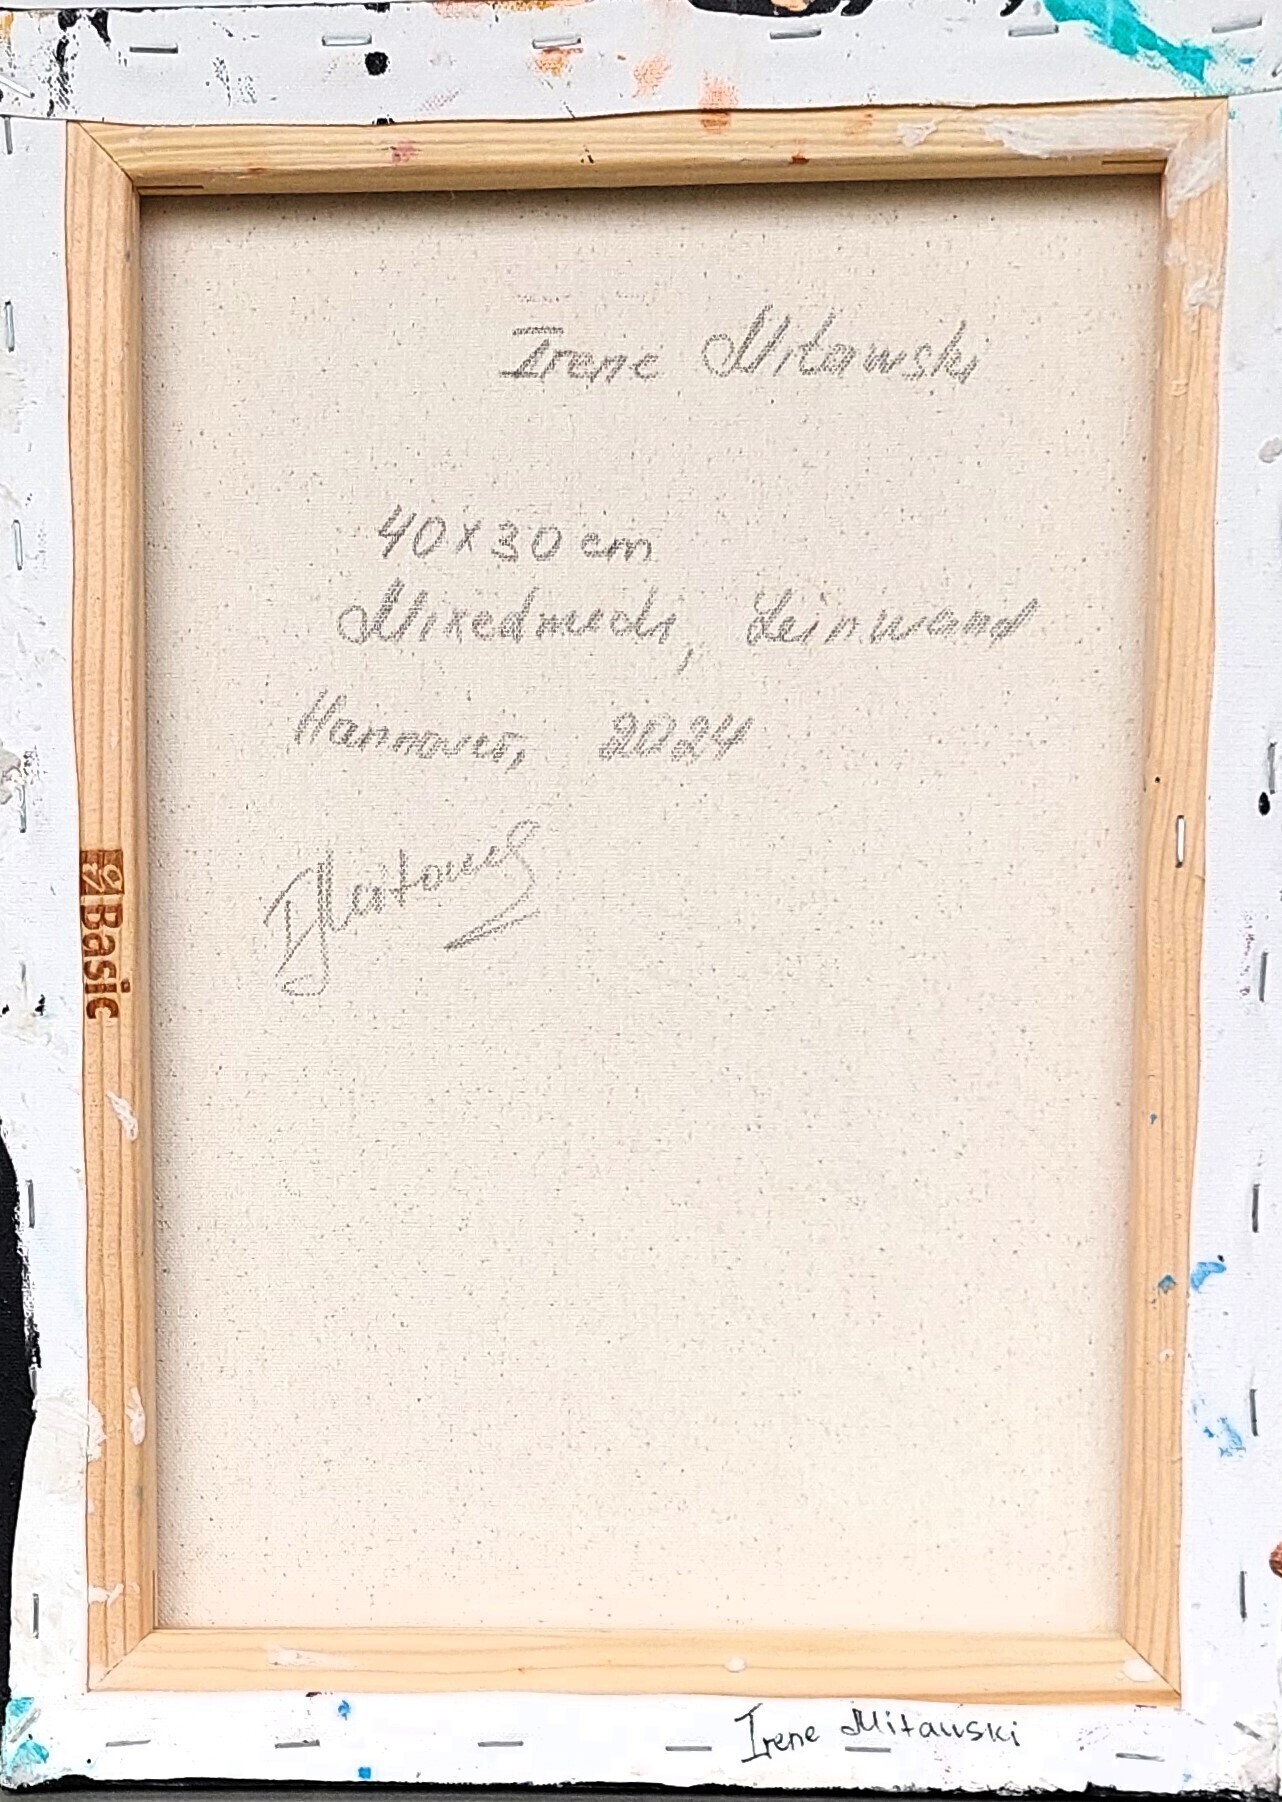 Irene Mitawski
40x30 cm
Mixedmedi, Leinwand
Hannover, 2024
Basic
Irene Mitawski